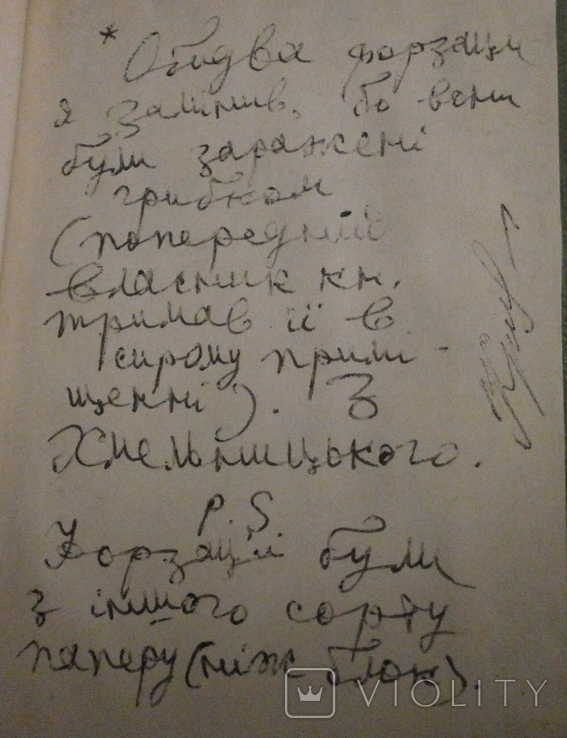 * Обидва форзаци
я замінив, бо вони
були заражені
грибком
(попередній
власник кн.
тримав її в
сирому примі-
щенні). З
Хмельницького.
P.S
Форзаци були
з іншого сорту
паперу (ніж блок).
VIOLITY